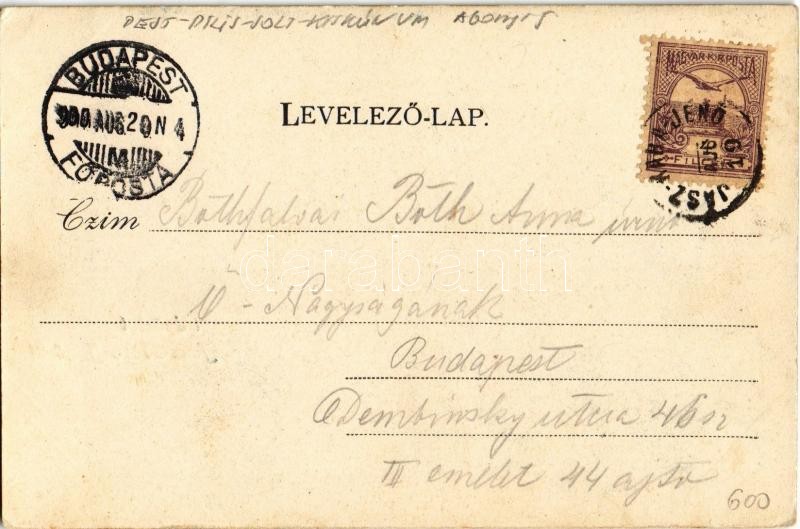 PEST-PILIS-SOLT-KISKÚN VM
BUDAPEST
900 AUG. 20 N 4
M
FŐPOSTA
LEVELEZŐ-LAP.
MAGYAR KIR. POSTA
JÁSZ
AUG 19
darabanth
Czim Bóthfalvai Bóth Anna
Ő - Nagyságának
Budapest
Dembinsky utcza 46 sz
III emelet 44 ajtó
600